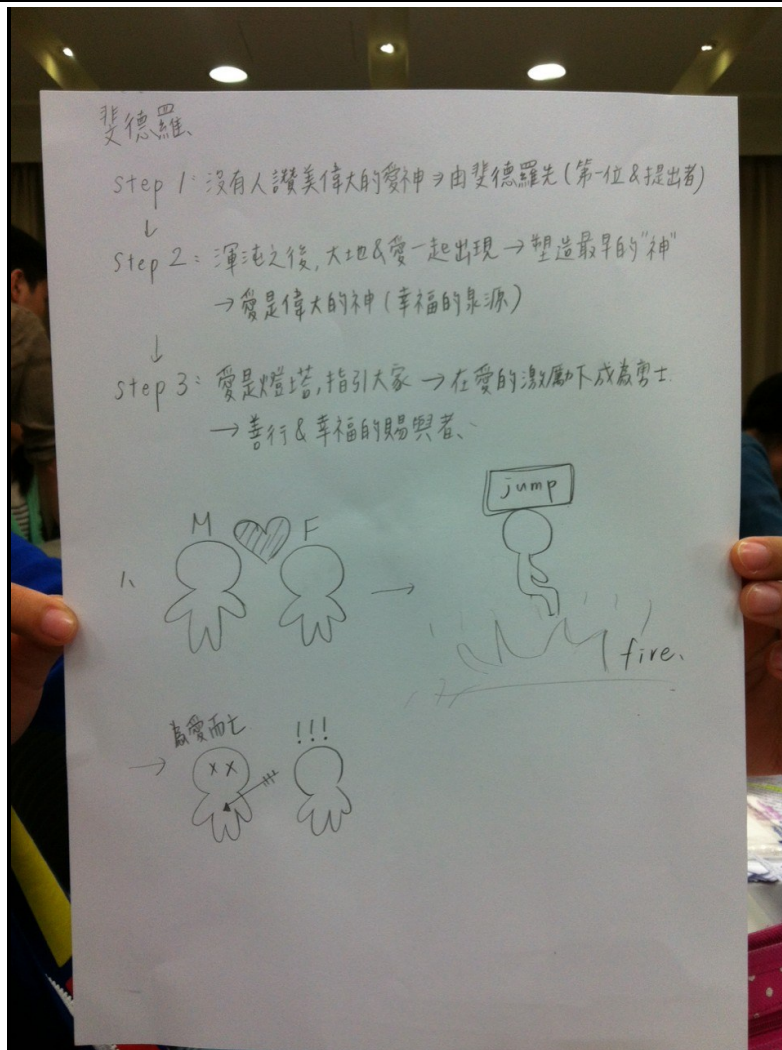 斐德羅
step 1：沒有人讚美偉大的愛神⇒由斐德羅先(第一位&提出者)
↓
step 2：渾沌之後,大地&愛一起出現→塑造最早的"神"
→愛是偉大的神(幸福的泉源)
↓
step 3：愛是燈塔,指引大家→在愛的激勵下成為勇士.
→善行&幸福的賜與者、
jump
M F
1、
→
fire、
為愛而亡 !!!
→